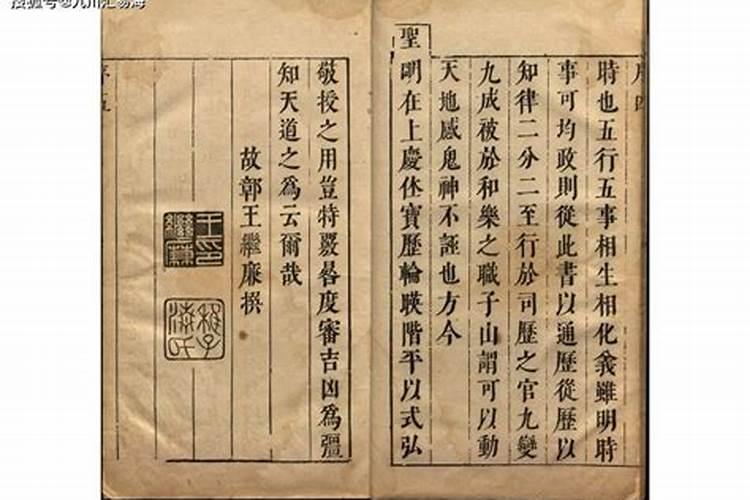 時也五行五事相生相化義雖明時
事可均政則從此書以通歷從歷以
知律二分二至行於司歷之官九變
九成被於和樂之職子山謂可以動
天地感鬼神不誣也方今
聖明在上慶休寶歷輪暎階平以式弘
敬授之用豈特覈晷度審吉凶為彊
知天道之為云爾哉
故鄣王繼廉撰
王印
繼廉